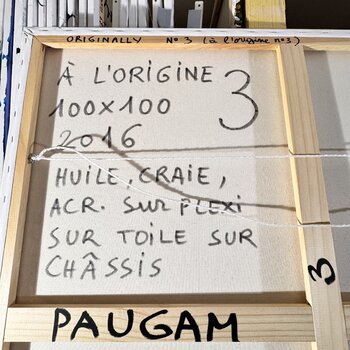 ORIGINALLY N° 3 (à l'origine n°3)
À L'ORIGINE 3
100x100
2016
HUILE, CRAIE,
ACR. SUR PLEXI
SUR TOILE SUR
CHÂSSIS
3
PAUGAM